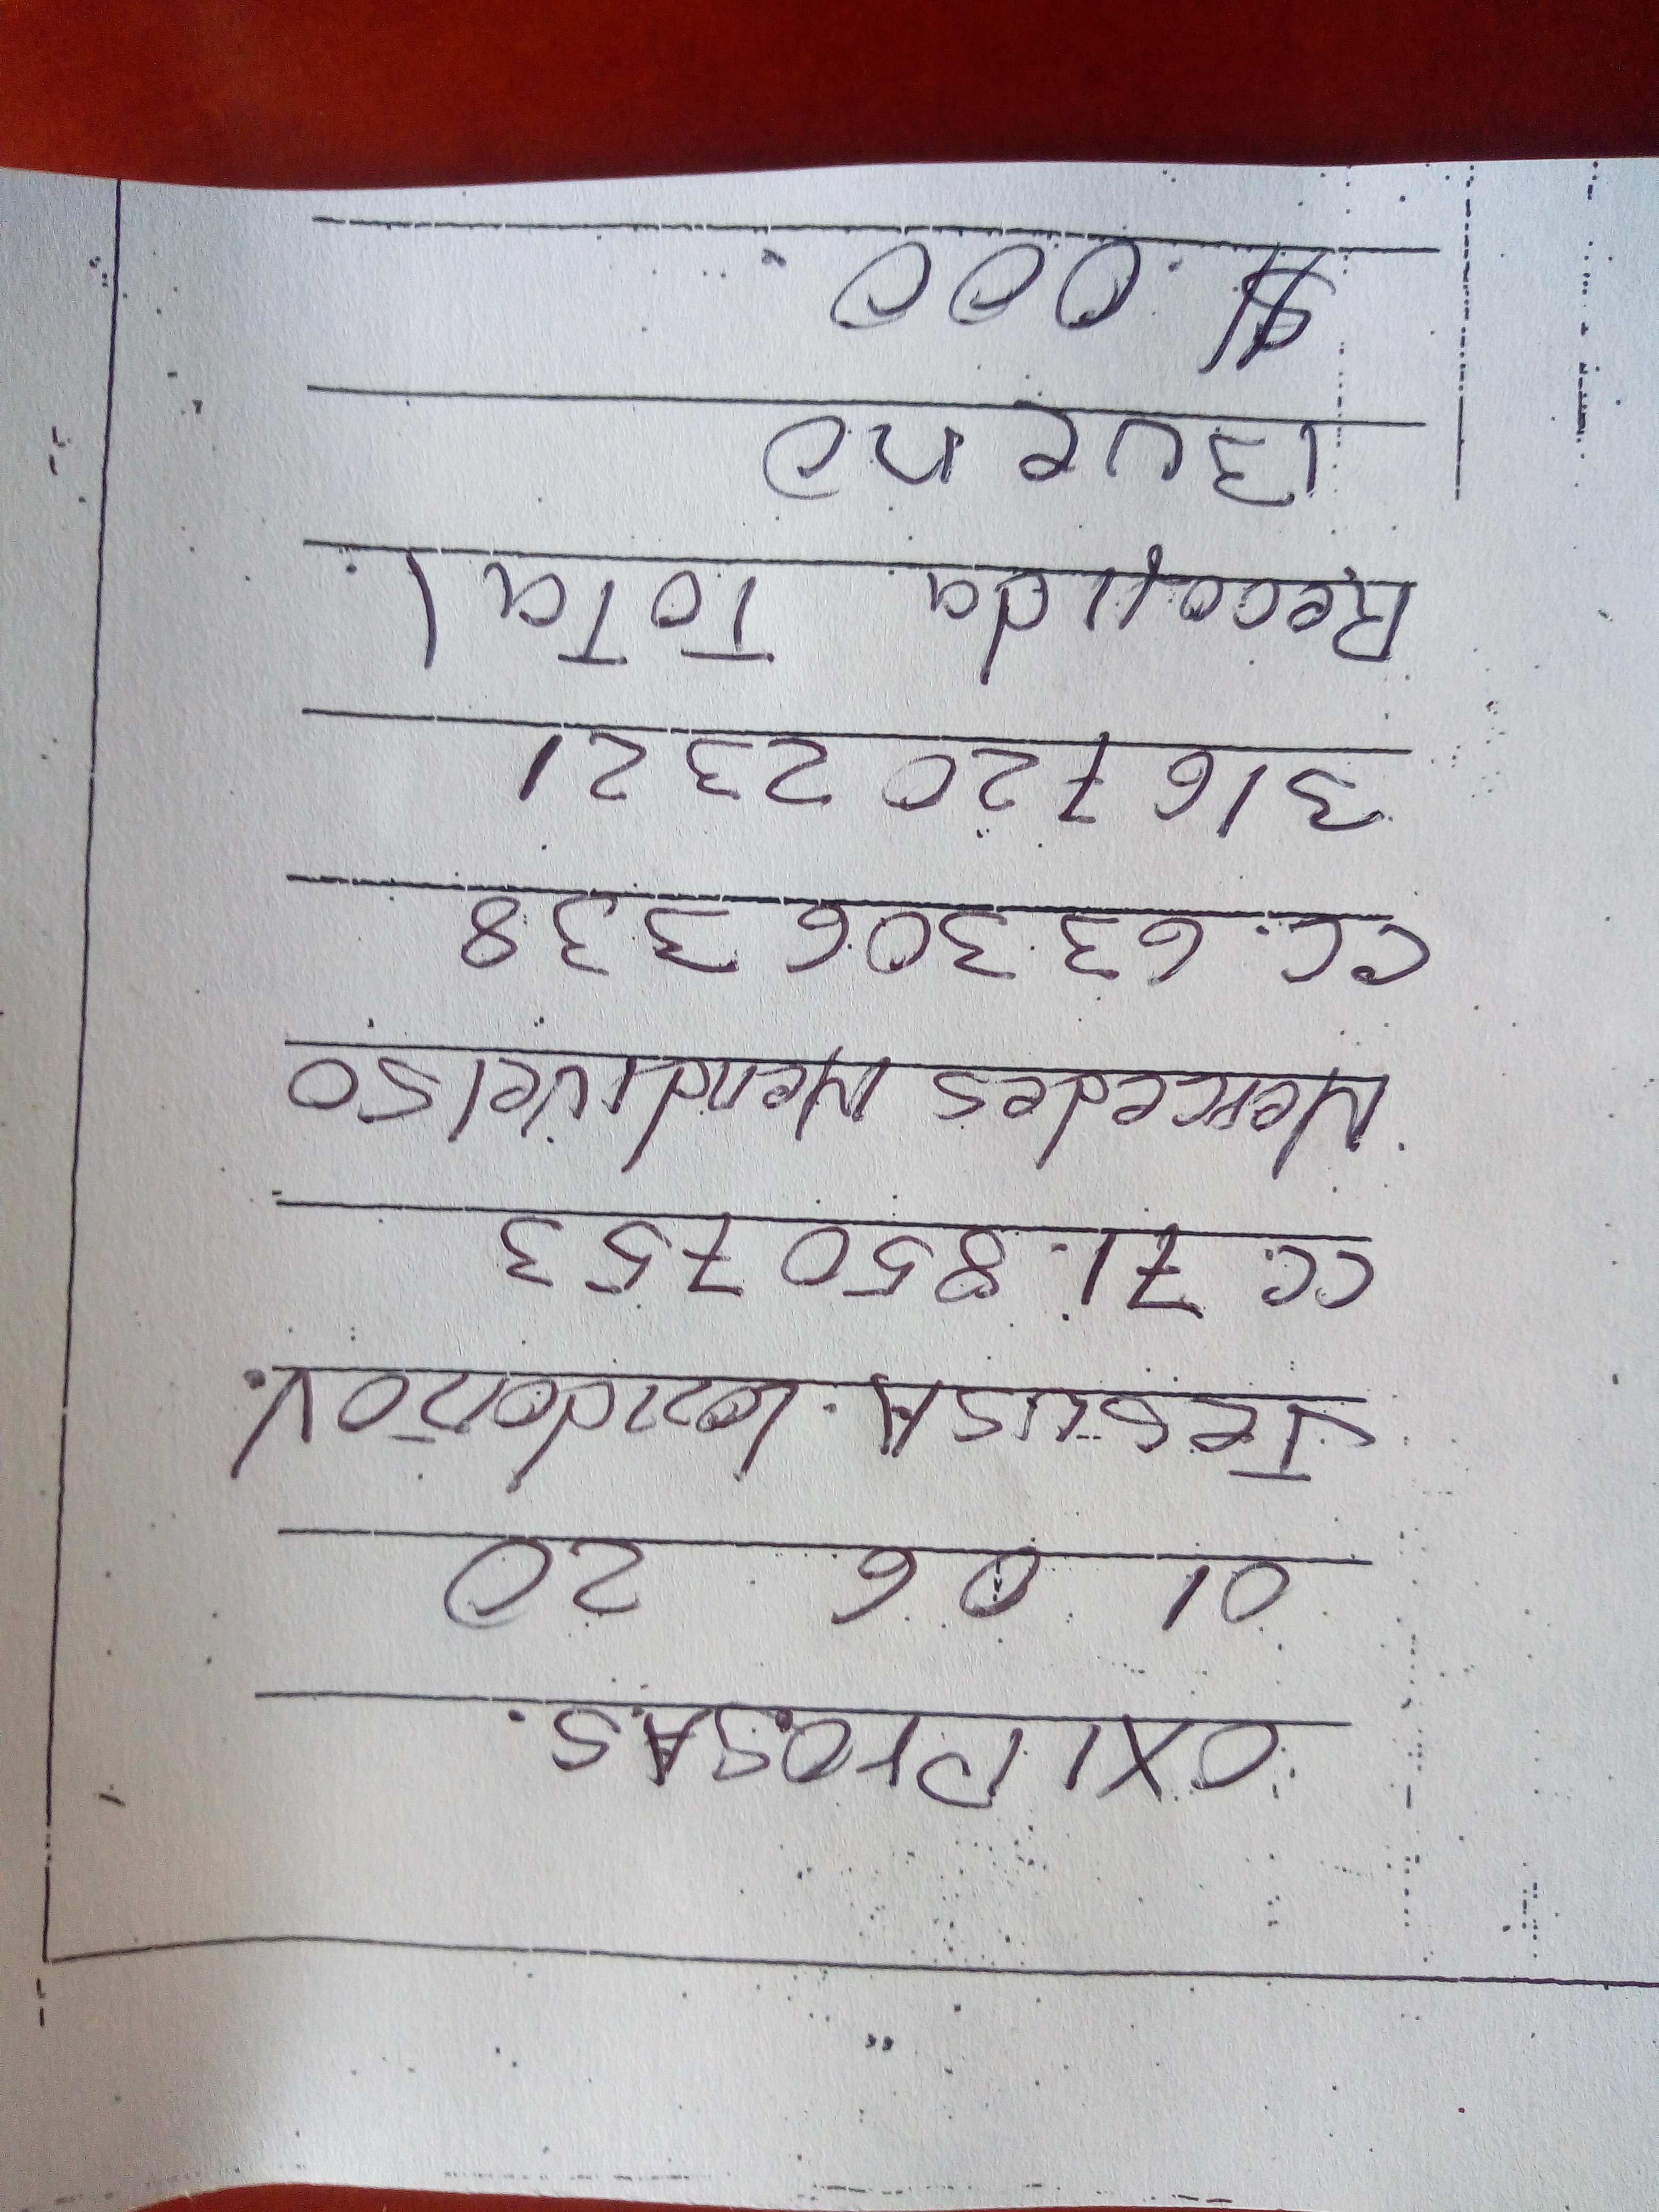 OXIPROSAS.
01 06 20
Jesus A. Londoño V.
CC. 71. 850 753
Mercedes Mendivelso
CC. 63.306 338
316 720 2321
Recojida Total
Bueno
$ 000